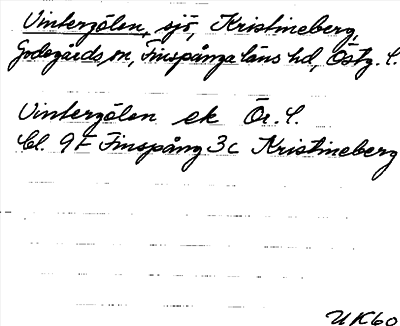 Vintergölen, sjö, Kristineberg,
Godegårds sn, Finspånga läns hd, Östg. L.
Vintergölen ek Ör. L.
Bl. 9F Finspång 3c Kristineberg
UK60